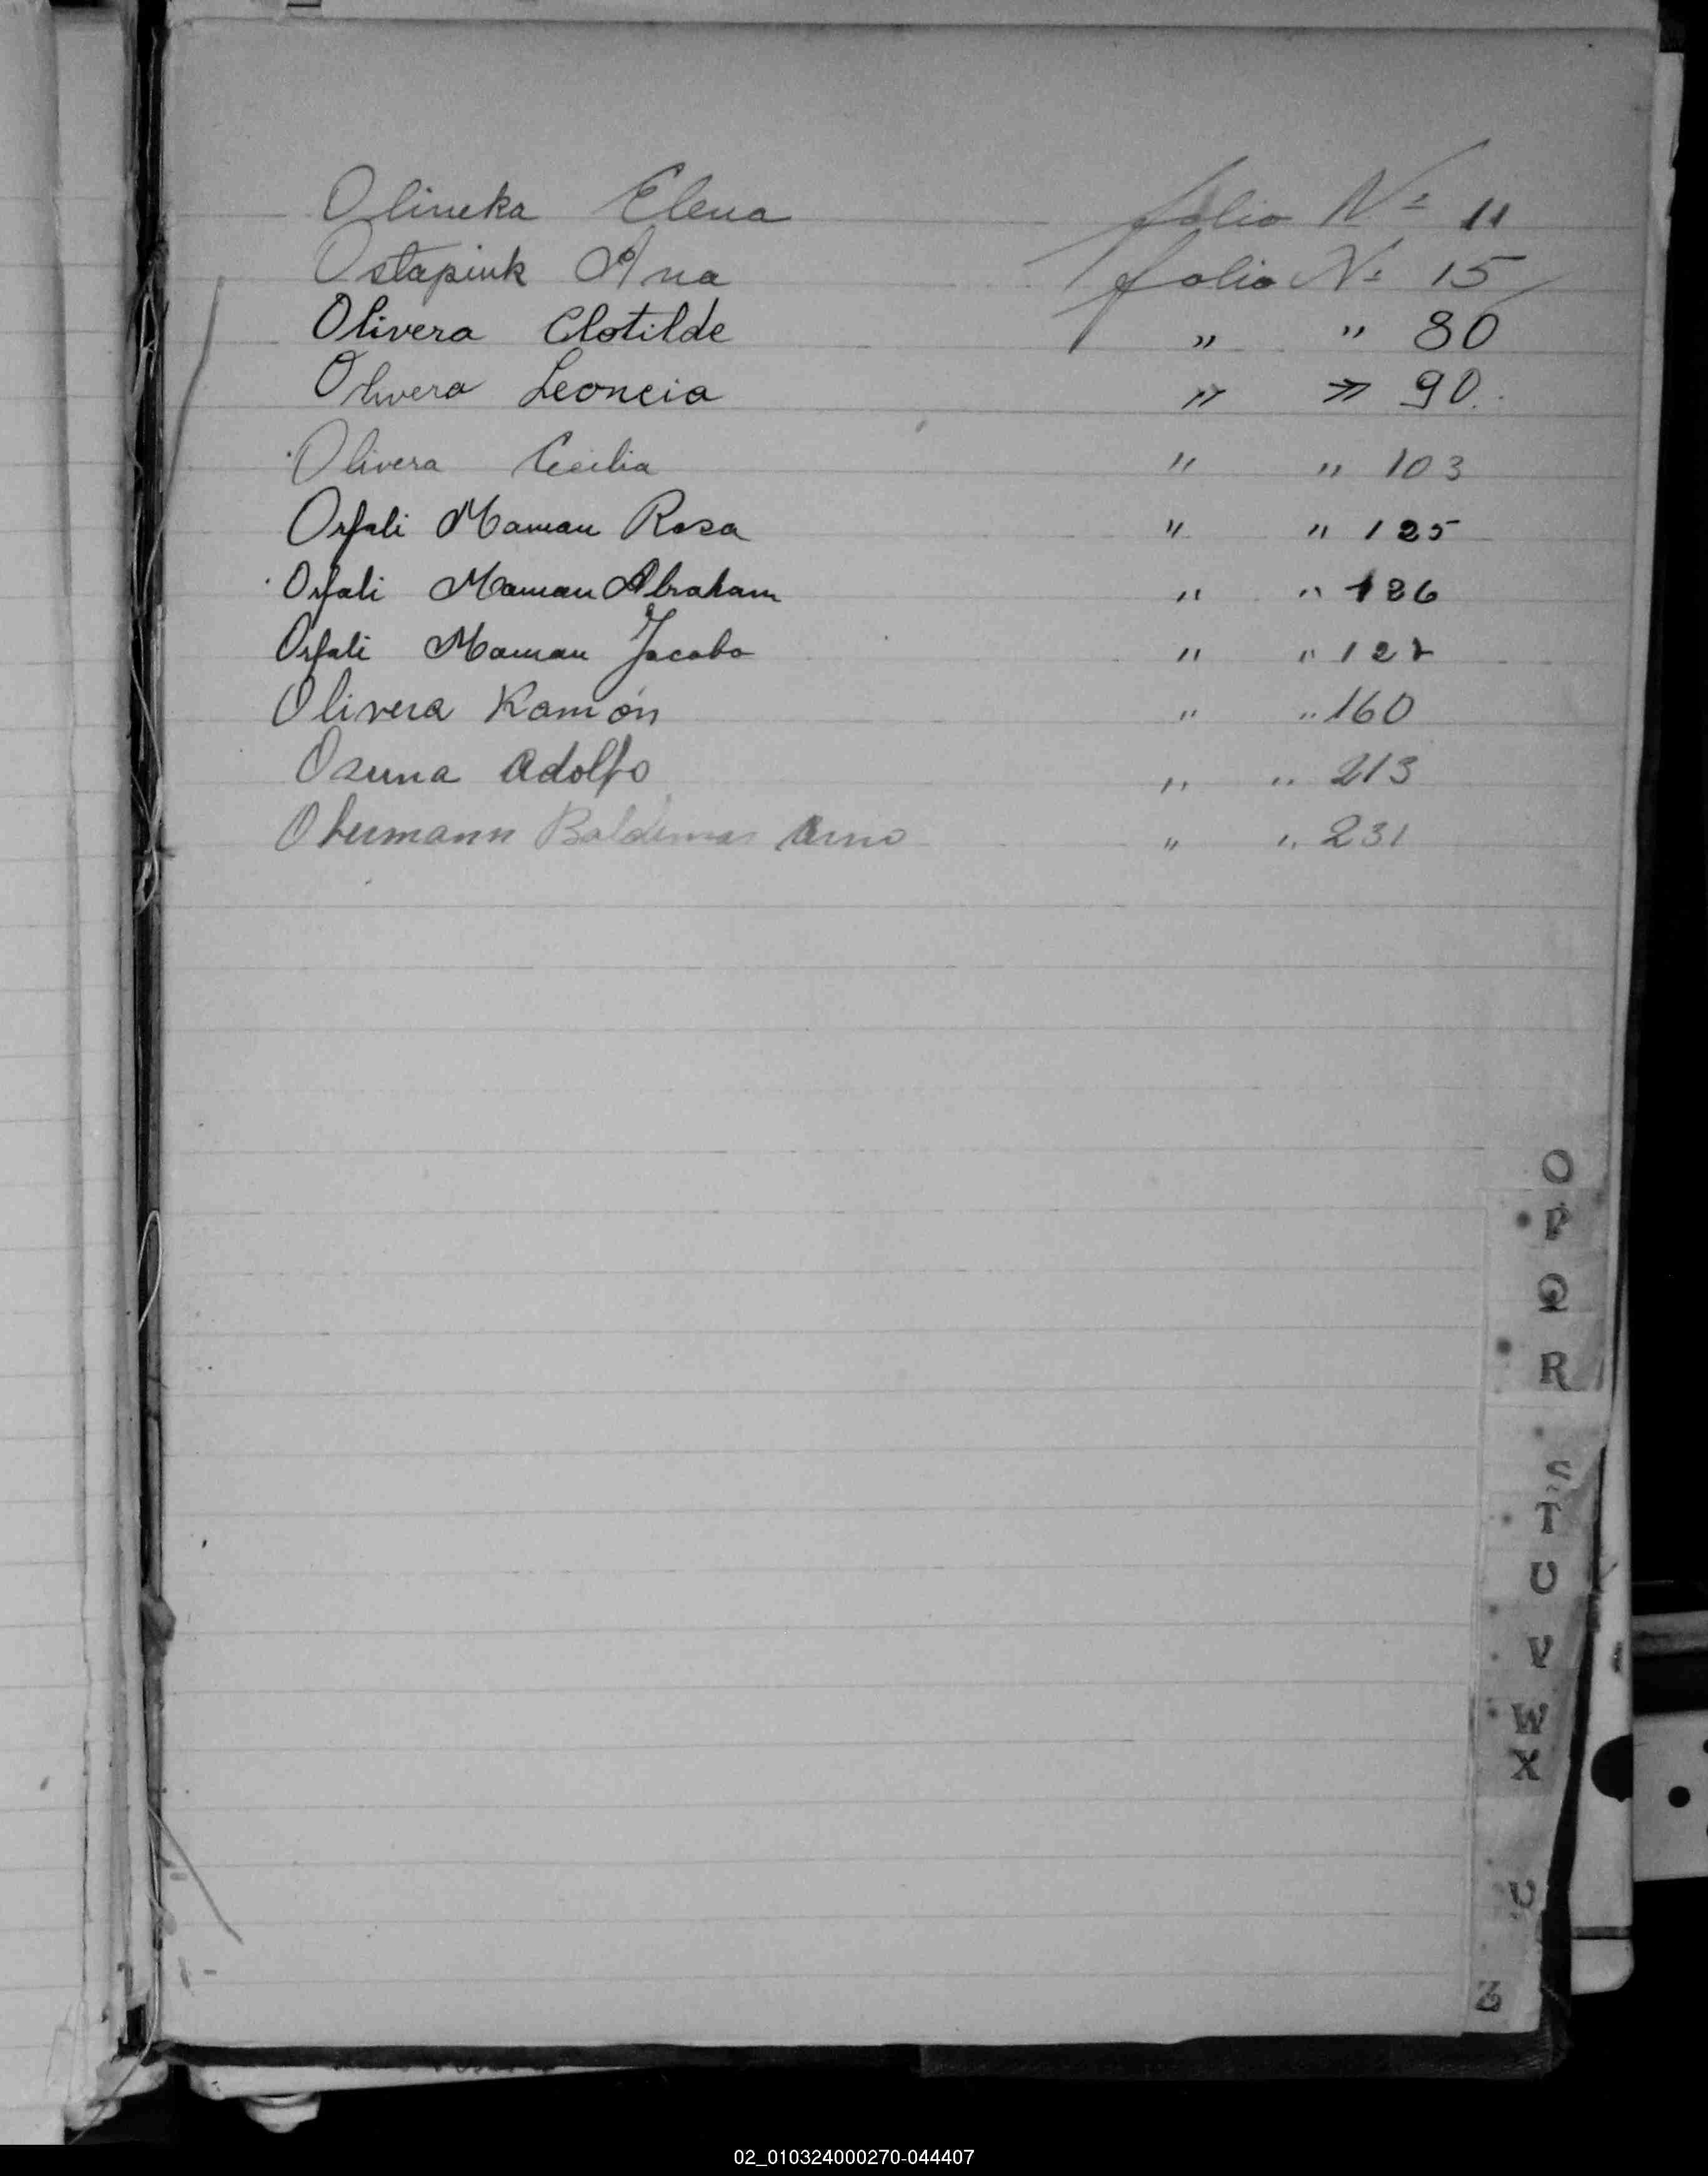 Olineka Elena folio Nº 11
Ostapiuk Ana folio Nº 15
Olivera Clotilde " " 80
Olivera Leoncia " " 90
Olivera Cecilia " " 103
Orfali Maman Rosa " " 125
Orfali Maman Abraham " " 126
Orfali Maman Jacobo " " 127
Olivera Ramón " " 160
Osuna Adolfo " " 213
Obermann Baldemar Arno " " 231
O
P
Q
R
S
T
U
V
W
X
Z
02_010324000270-044407